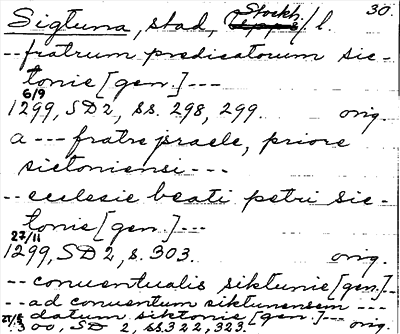 Sigtuna, stad, Stockh. / l. 30.
-- fratrum predicatorum sic-
tonie [gen.] ---
6/9
1299, SD 2, ss. 298, 299. orig.
a --- fratre praele, priore
sictoniensi ---
-- ecclesie beati petri sic-
tonie [gen.] ---
27/11
1299, SD 2, s. 303. orig.
-- conuentualis siktunie [gen.] --
-- ad conuentum siktunensem ---
-- datum siktonie [gen.] ---
1300, SD 2, ss. 322, 323. orig.